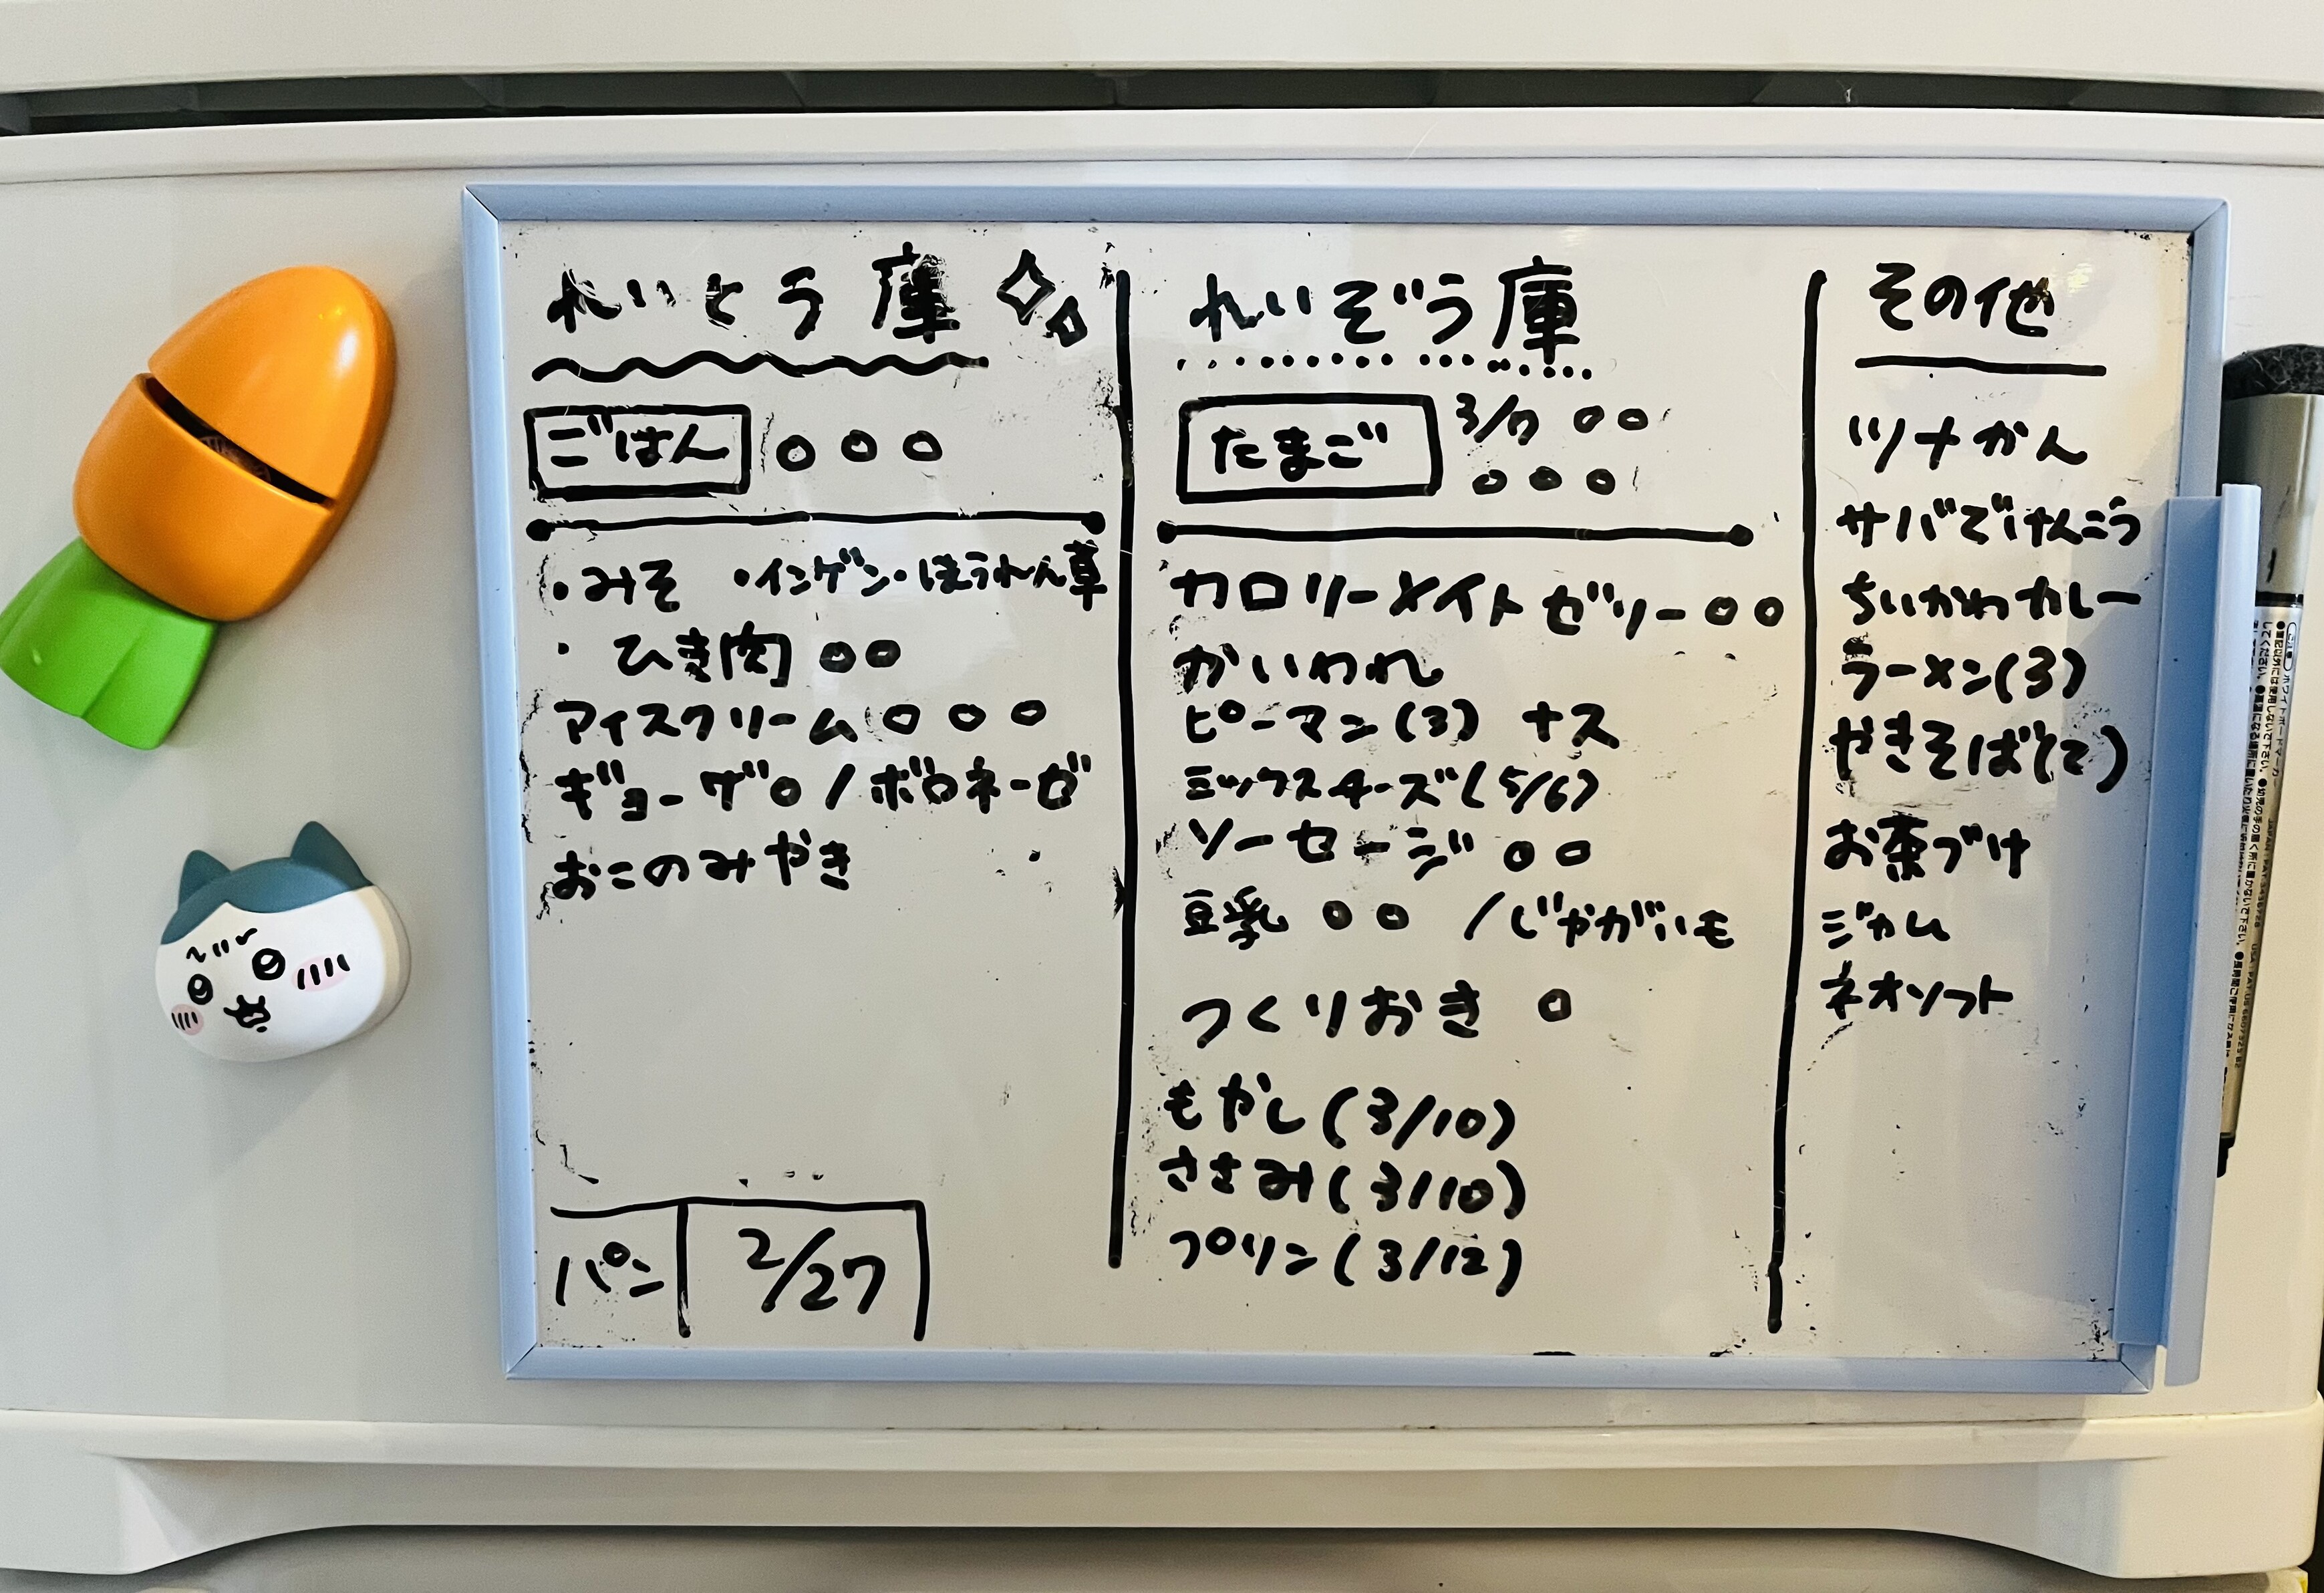 れいとう庫
ごはん ○ ○ ○
・みそ ・インゲン・ほうれん草
・ひき肉 ○○
アイスクリーム ○ ○ ○
ギョーザ○ / ボロネーゼ
おこのみやき
パン 2/27
れいぞう庫
たまご 3/7 ○○
○○○
カロリーメイトゼリー○○
かいわれ
ピーマン(3) ナス
ミックスチーズ(5/6)
ソーセージ ○○
豆乳 ○○ /じゃがいも
つくりおき ○
もやし(3/10)
ささみ(3/10)
プリン(3/12)
その他
ツナかん
サバでけんこう
ちいかわカレー
ラーメン(3)
やきそば(2)
お茶づけ
ジャム
ネオソフト